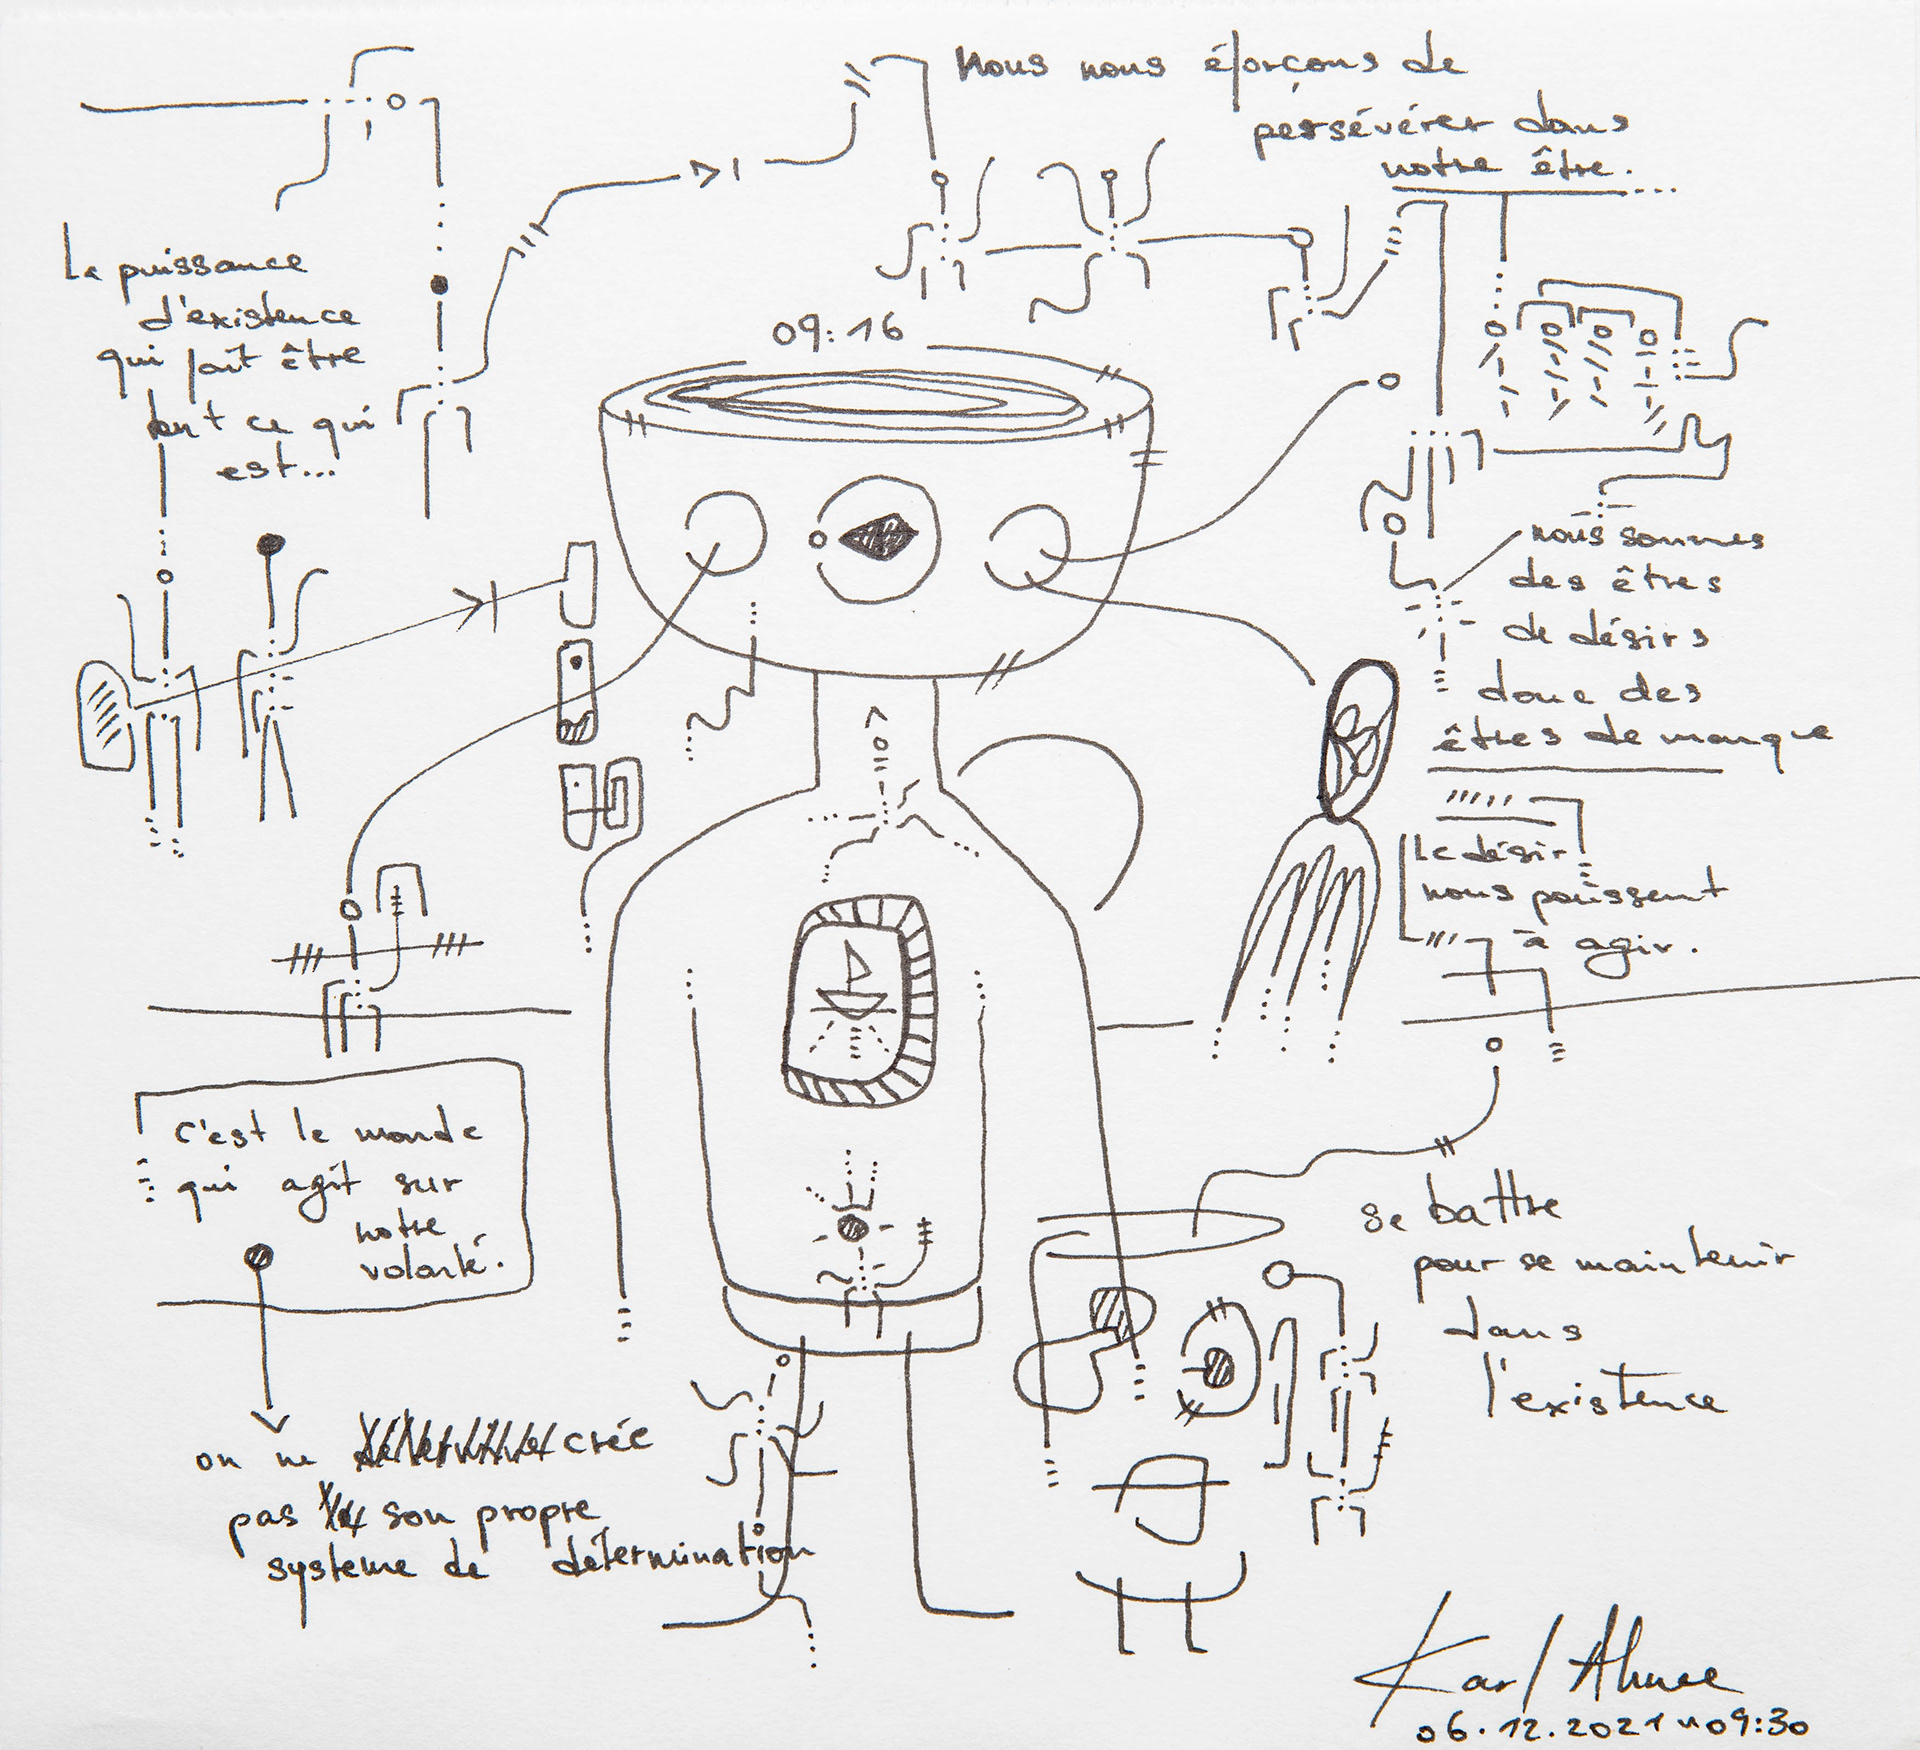 Nous nous éforçons de
persévérer dans
notre être....
La puissance
d'existence
qui fait être
tout ce qui
est...
09:16
nous sommes
des êtres
de désirs
donc des
êtres de manque
Le désir
nous poussent
à agir.
c'est le monde
qui agit sur
notre
volonté.
on ne crée
pas son propre
système de détermination
se battre
pour se maintenir
dans
l'existence
Karl
06.12.2021 09:30